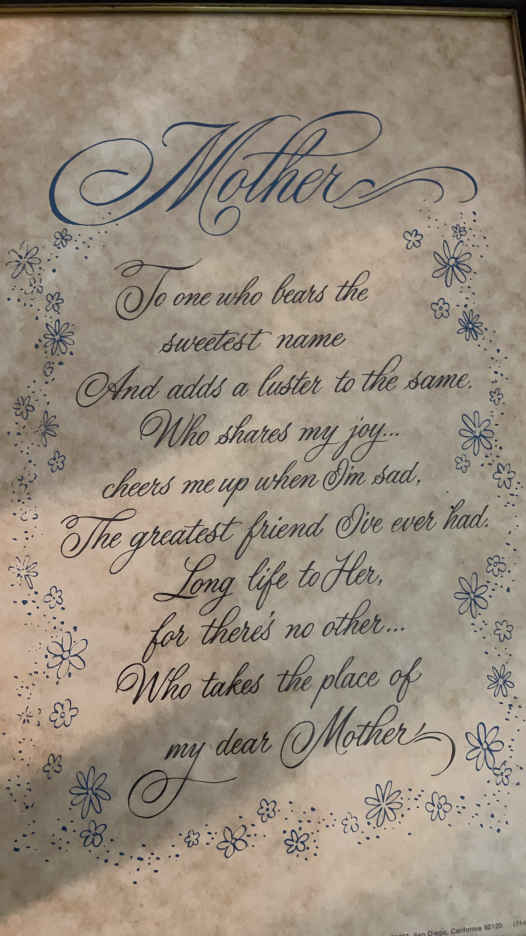 Mother
To one who bears the
sweetest name
And adds a luster to the same.
Who shares my joy...
cheers me up when I'm sad,
The greatest friend I've ever had.
Long life to Her,
for there's no other...
Who takes the place of
my dear Mother!
San Diego, California 92120